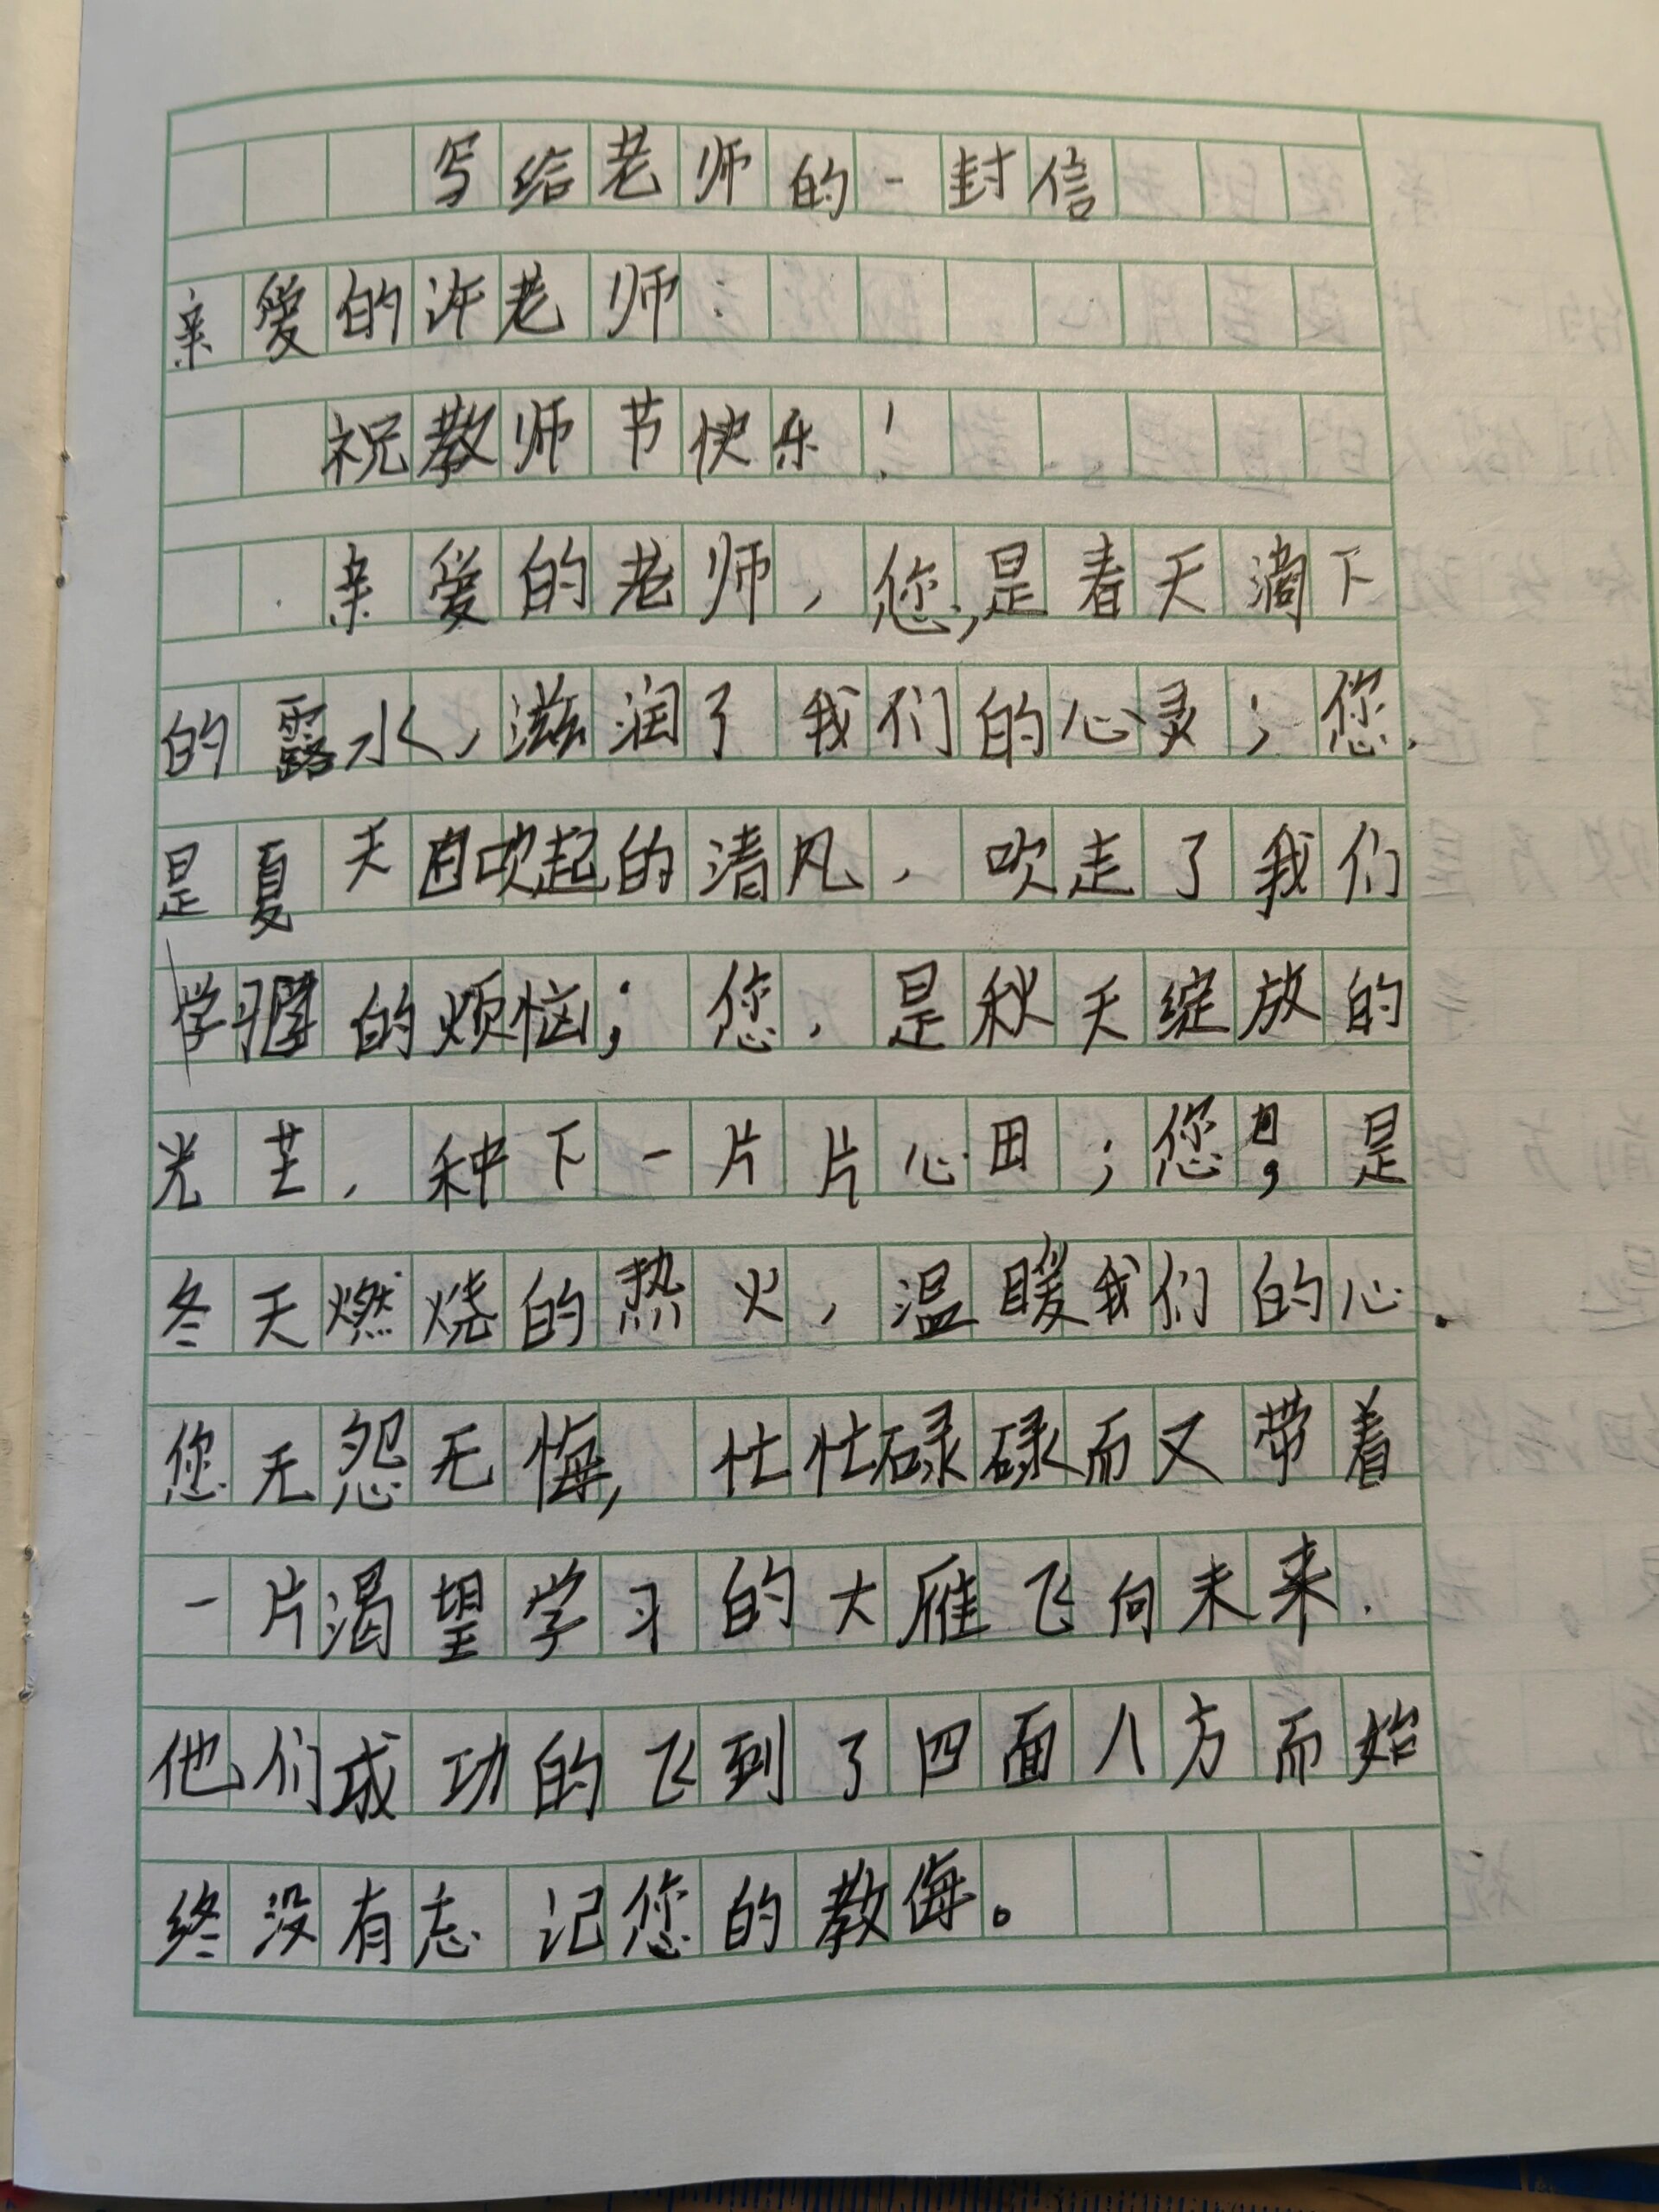 写给老师的一封信
亲爱的许老师：
祝教师节快乐！
亲爱的老师，您，是春天滴下
的露水，滋润了我们的心灵；您，
是夏天吹起的清风，吹走了我们
学习的烦恼；您，是秋天绽放的
光芒，种下一片片心田；您，是
冬天燃烧的热火，温暖我们的心.
您无怨无悔，忙忙碌碌而又带着
一片渴望学习的大雁飞向未来.
他们成功的飞到了四面八方而始
终没有忘记您的教诲。